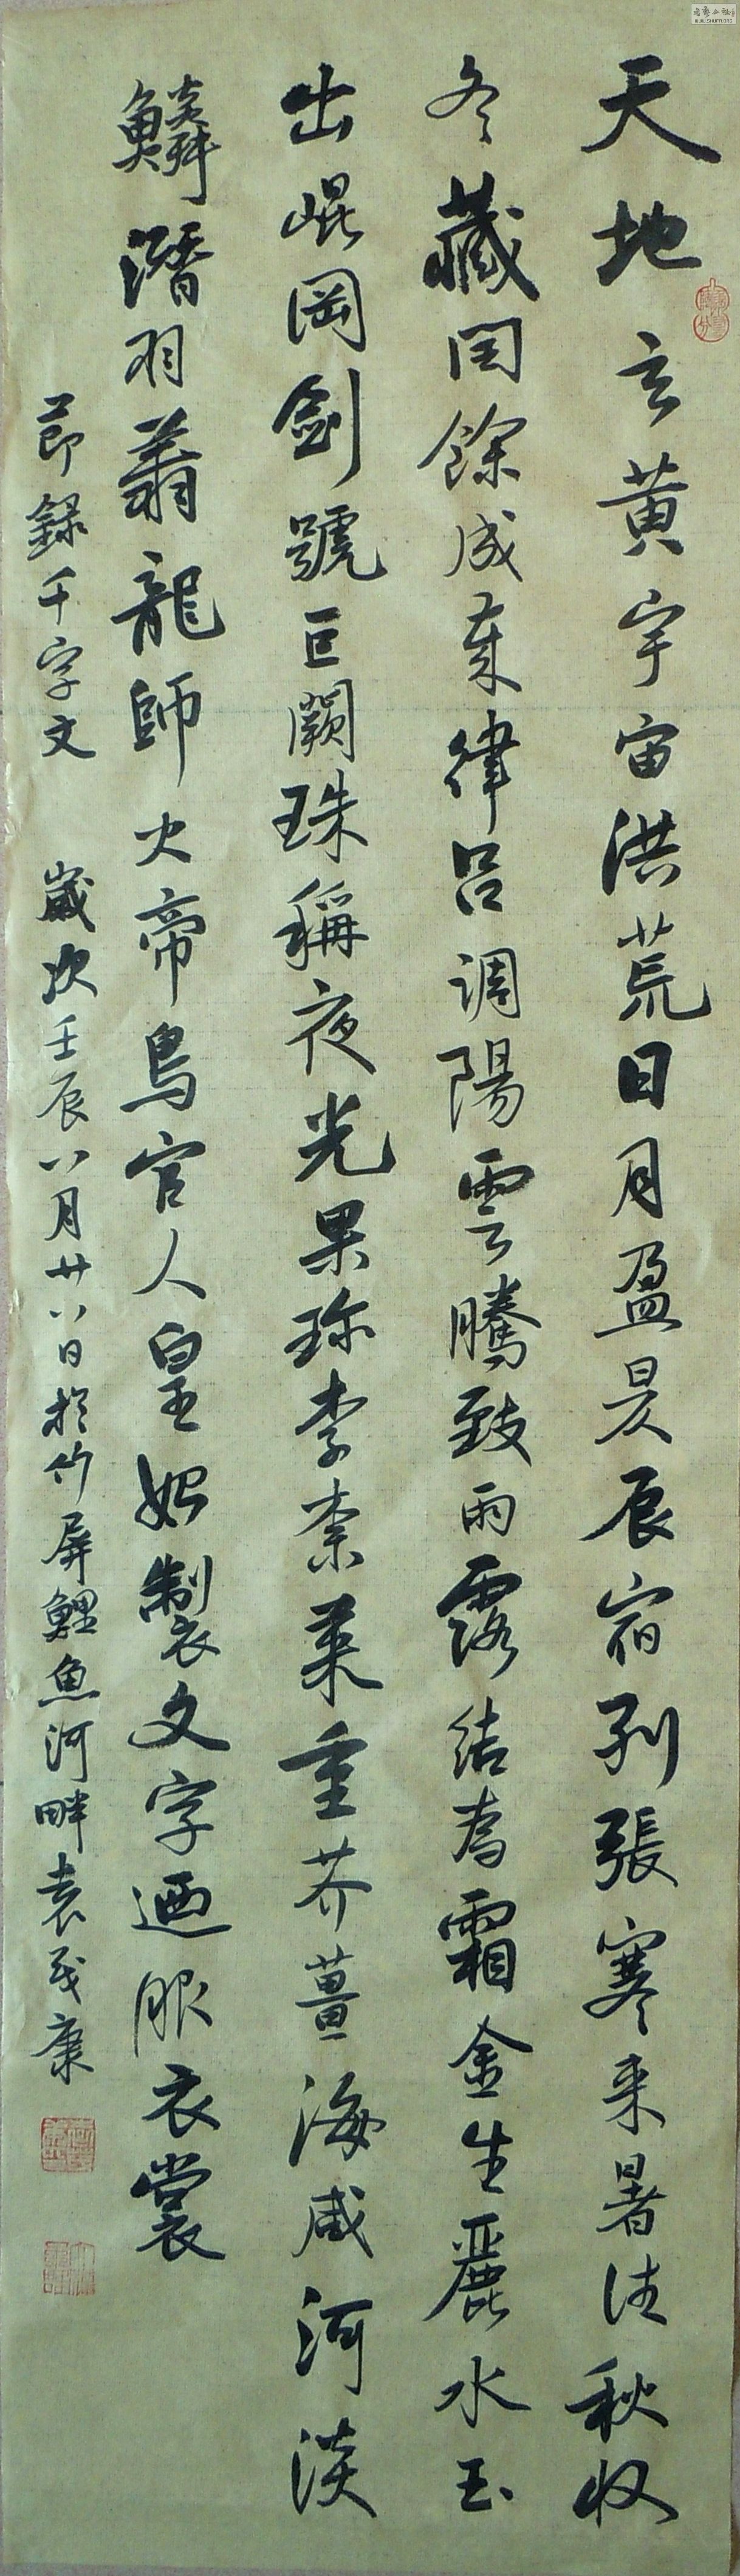 天地玄黄宇宙洪荒日月盈昃辰宿列張寒来暑往秋收
冬藏閏餘成歲律吕調陽雲騰致雨露結為霜金生麗水玉
出崐岡劍號巨闕珠稱夜光果珎李柰菜重芥薑海咸河淡
鱗潛羽翥龍師火帝鳥官人皇始製文字迺服衣裳
節録千字文 歲次壬辰八月廿八日於竹屏鯉魚河畔袁茂康
WWW.SHUFA.ORG